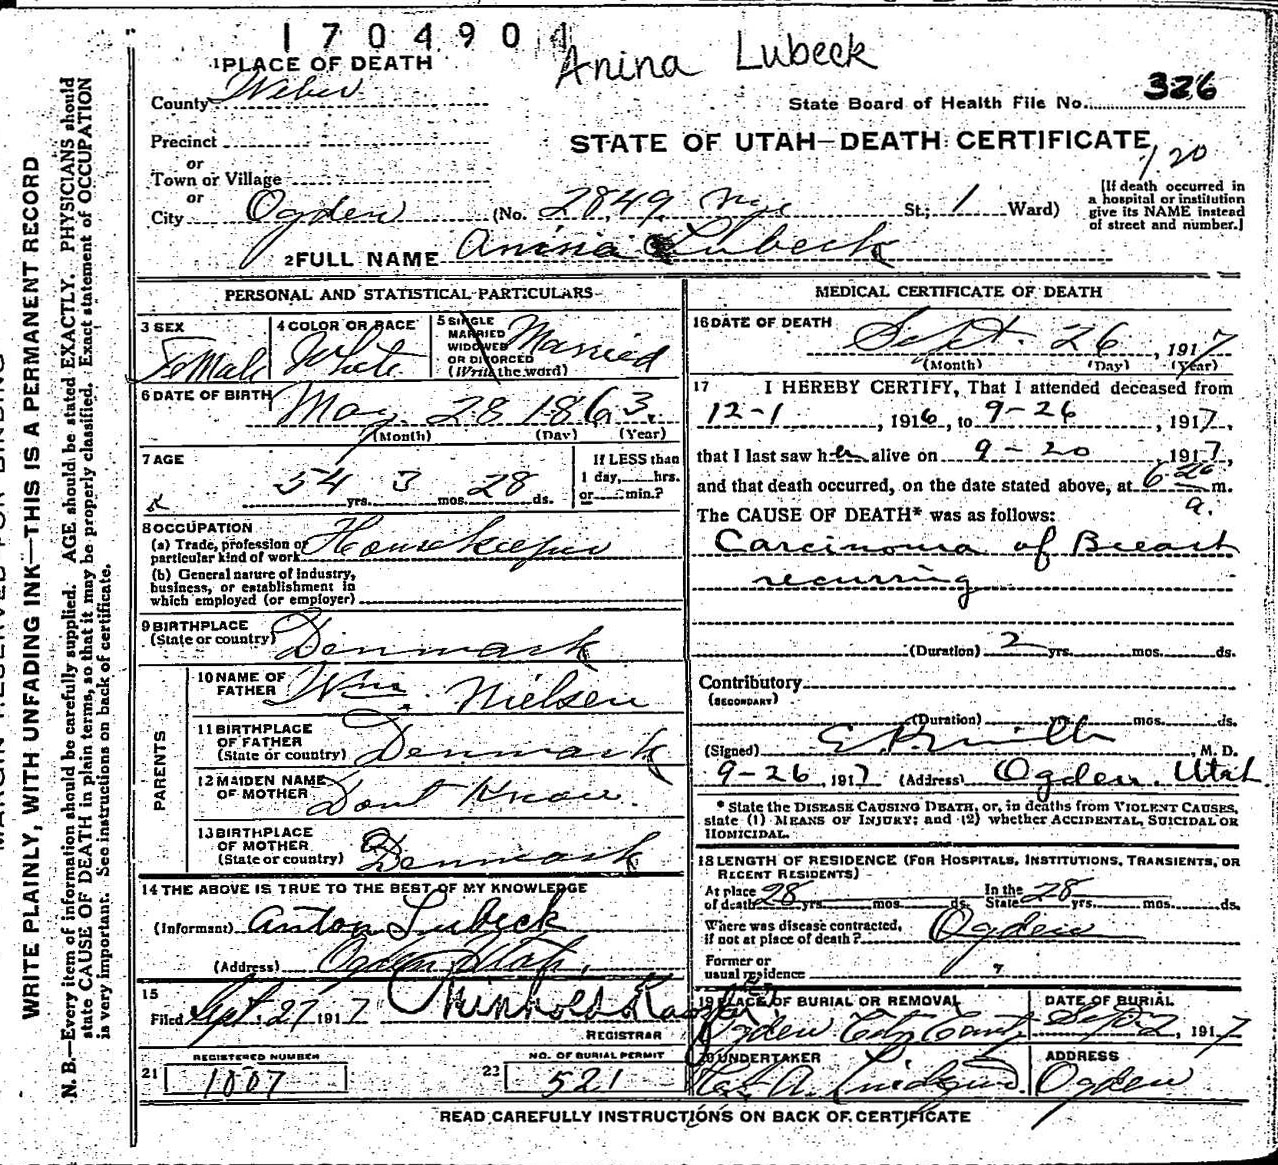 1704901
Anina Lubeck
1 PLACE OF DEATH
County Weber
State Board of Health File No. 326
Precinct
STATE OF UTAH—DEATH CERTIFICATE
120
or
Town or Village
or
City Ogden (No. 2849 St.; 1 Ward)
[If death occurred in
a hospital or institution
give its NAME instead
of street and number.]
2 FULL NAME Anina Lubeck
PERSONAL AND STATISTICAL PARTICULARS
3 SEX
Female
4 COLOR OR RACE
White
5 SINGLE
MARRIED
WIDOWED
OR DIVORCED
(Write the word)
Married
6 DATE OF BIRTH
May 28 1863.
(Month) (Day) (Year)
7 AGE
54 yrs. 3 mos. 28 ds.
If LESS than
1 day, hrs.
or min.?
8 OCCUPATION
(a) Trade, profession or
particular kind of work Housekeeper
(b) General nature of industry,
business, or establishment in
which employed (or employer)
9 BIRTHPLACE
(State or country) Denmark
PARENTS
10 NAME OF
FATHER Wm. Nielsen
11 BIRTHPLACE
OF FATHER
(State or country) Denmark
12 MAIDEN NAME
OF MOTHER Dont Know.
13 BIRTHPLACE
OF MOTHER
(State or country) Denmark
14 THE ABOVE IS TRUE TO THE BEST OF MY KNOWLEDGE
(Informant) Anton Lubeck
(Address) Ogden Utah.
15
Filed Sept. 27 1917
REGISTRAR
REGISTERED NUMBER
21 1007
NO. OF BURIAL PERMIT
22 521
MEDICAL CERTIFICATE OF DEATH
16 DATE OF DEATH
Sept. 26, 1917
(Month) (Day) (Year)
17 I HEREBY CERTIFY, That I attended deceased from
12-1, 1916, to 9-26, 1917,
that I last saw her alive on 9-20, 1917,
and that death occurred, on the date stated above, at 6 m.
a.
The CAUSE OF DEATH* was as follows:
Carcinoma of Breast
recurring
(Duration) 2 yrs. mos. ds.
Contributory
(SECONDARY)
(Duration) mos. ds.
(Signed) M. D.
9-26, 1917 (Address) Ogden. Utah
* State the DISEASE CAUSING DEATH, or, in deaths from VIOLENT CAUSES,
state (1) MEANS OF INJURY; and (2) whether ACCIDENTAL, SUICIDAL OR
HOMICIDAL.
18 LENGTH OF RESIDENCE (FOR HOSPITALS, INSTITUTIONS, TRANSIENTS, OR
RECENT RESIDENTS)
At place
of death 28 yrs. mos. ds.
In the
State 28 yrs. mos. ds.
Where was disease contracted,
if not at place of death? Ogden
Former or
usual residence "
19 PLACE OF BURIAL OR REMOVAL
Ogden City
DATE OF BURIAL
Sept, 1917
20 UNDERTAKER
A. Lindquist
ADDRESS
Ogden
READ CAREFULLY INSTRUCTIONS ON BACK OF CERTIFICATE
WRITE PLAINLY, WITH UNFADING INK—THIS IS A PERMANENT RECORD
N. B.—Every item of information should be carefully supplied. AGE should be stated EXACTLY. PHYSICIANS should
state CAUSE OF DEATH in plain terms, so that it may be properly classified. Exact statement of OCCUPATION
is very important. See instructions on back of certificate.